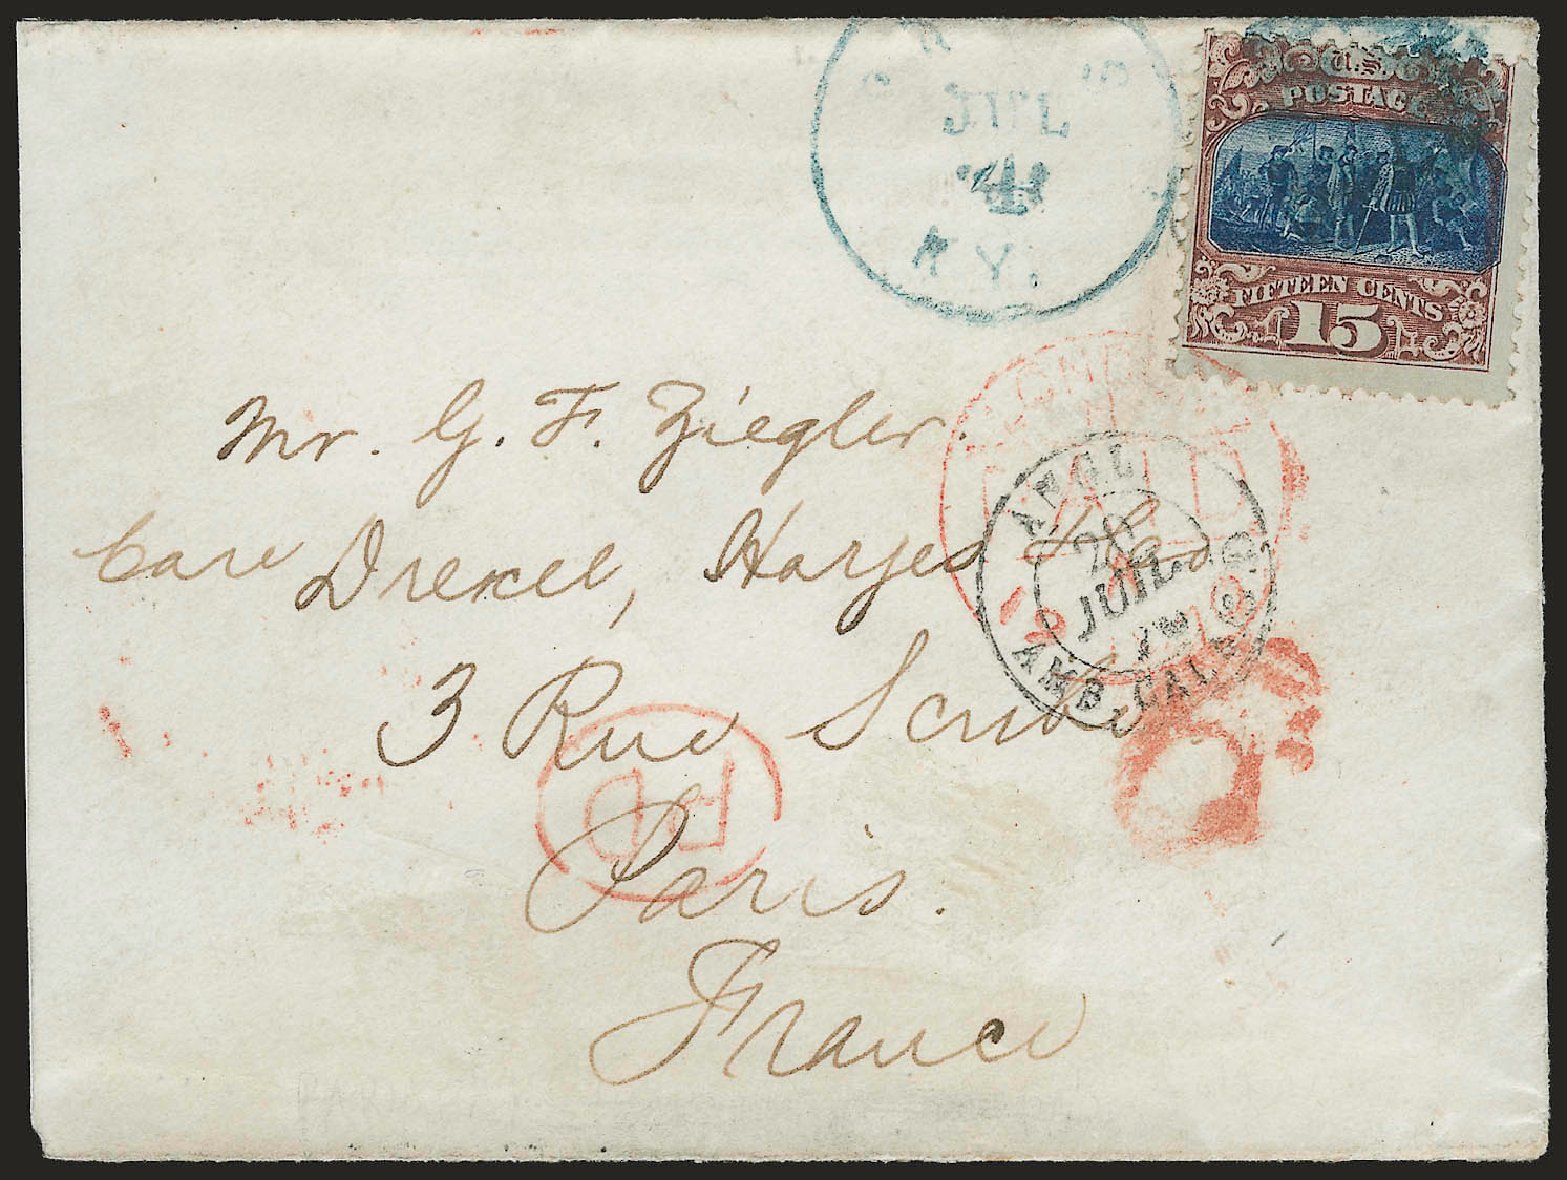 JUL
4
KY.
U.S.
POSTAGE
FIFTEEN CENTS
15
Mr. G. F. Ziegler.
Care Drexel, Harjes & Co
3 Rue Scribe
Paris.
France
PAID
ANGL
20
JUIL
AMB. CAL
PD